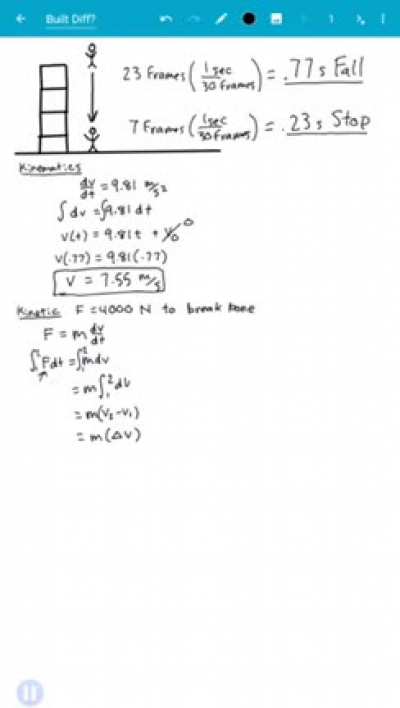 Built Diff?
23 Frames (1 sec / 30 Frames) = .77s Fall
7 Frames (1 sec / 30 Frames) = .23s Stop
Kinematics
dv/dt = 9.81 m/s²
∫ dv = ∫ 9.81 dt
v(t) = 9.81t + V₀ 0
v(.77) = 9.81(.77)
V = 7.55 m/s
Kinetic F = 4000 N to break bone
F = m dv/dt
∫₁² Fdt = ∫₁² mdv
= m ∫₁² dv
= m(V₂ - V₁)
= m(ΔV)